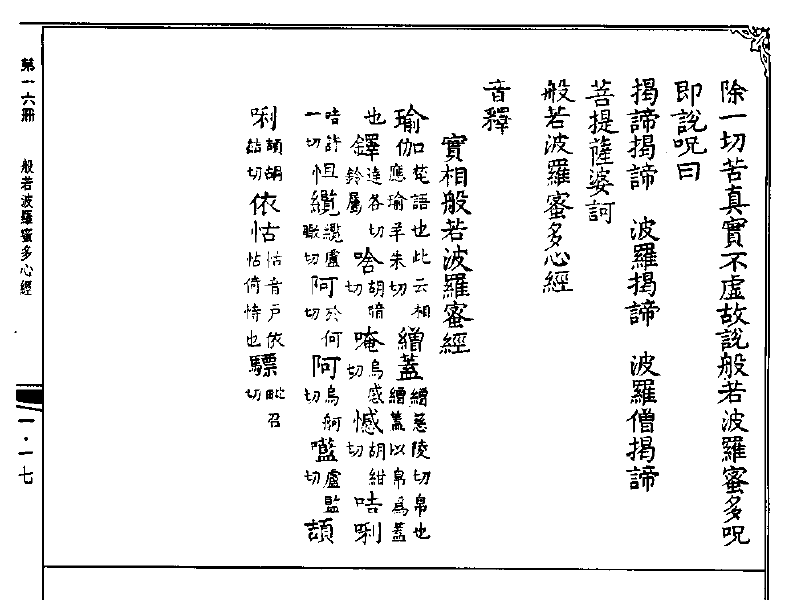 除一切苦真實不虛故說般若波羅蜜多呪
即說呪曰
揭諦揭諦 波羅揭諦 波羅僧揭諦
菩提薩婆訶
般若波羅蜜多心經
音釋
實相般若波羅蜜經
瑜伽梵語也此云相應瑜羊朱切 繒蓋繒慈陵切帛也繒蓋以帛為蓋
也 鐸達各切鈴屬 唅胡暗切 唵烏感切 憾胡紺切 咭唎
咭許一切 怚 纜纜盧瞰切 阿於何切 阿烏舸切 㘕盧監切 頡
唎頡胡結切 依怙怙音戶依怙倚恃也 驃毗召切
第一六冊 般若波羅蜜多心經
一·一七